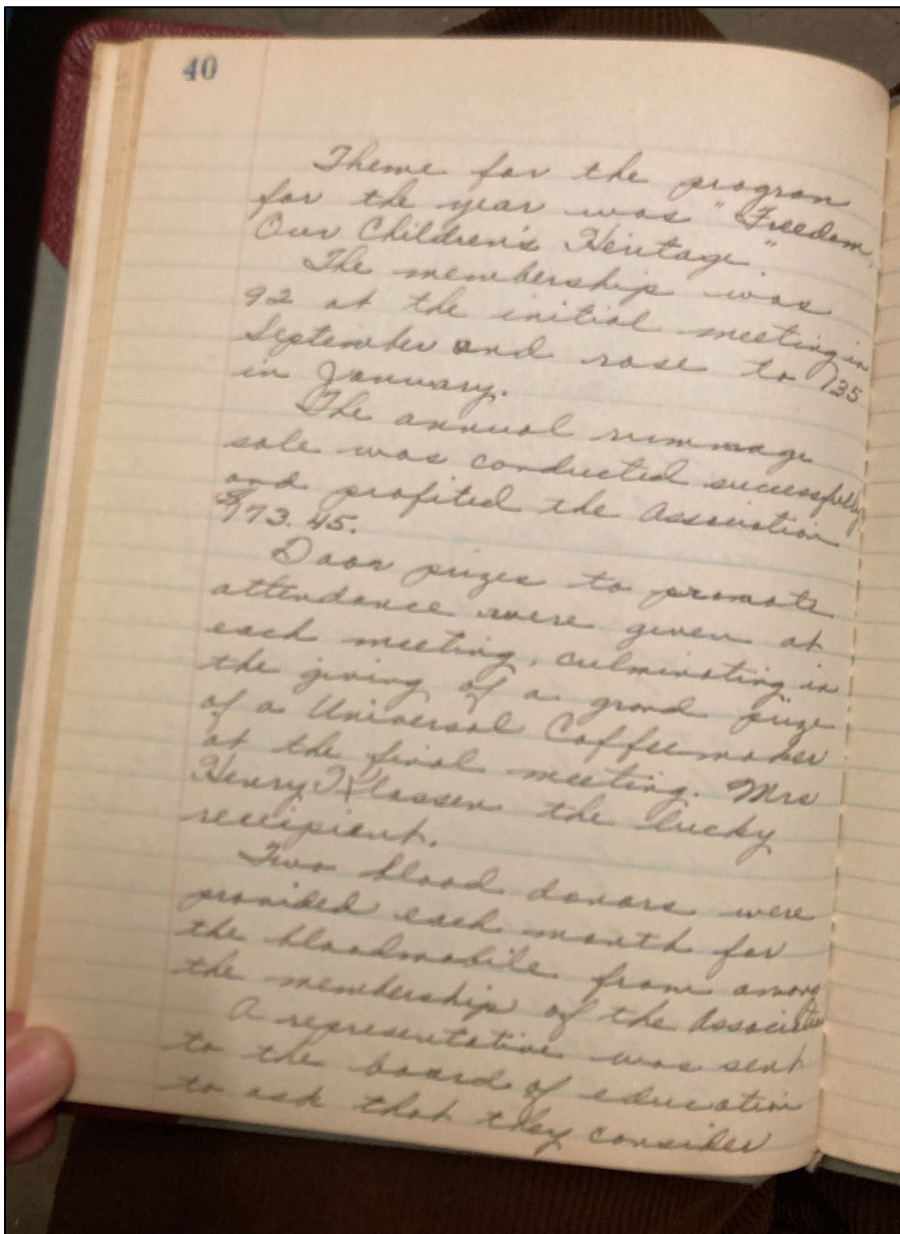 40
Theme for the program
for the year was "Freedom,
Our Children's Heritage".
The membership was
92 at the initial meeting in
September and rose to 135
in January.
The annual rummage
sale was conducted successfully
and profited the Association
$173.45.
Door prizes to promote
attendance were given at
each meeting, culminating in
the giving of a grand prize
of a Universal Coffeemaker
at the final meeting. Mrs
Henry Klassen the lucky
recipient.
Two blood donors were
provided each month for
the bloodmobile from among
the membership of the Association
A representative was sent
to the board of education
to ask that they consider